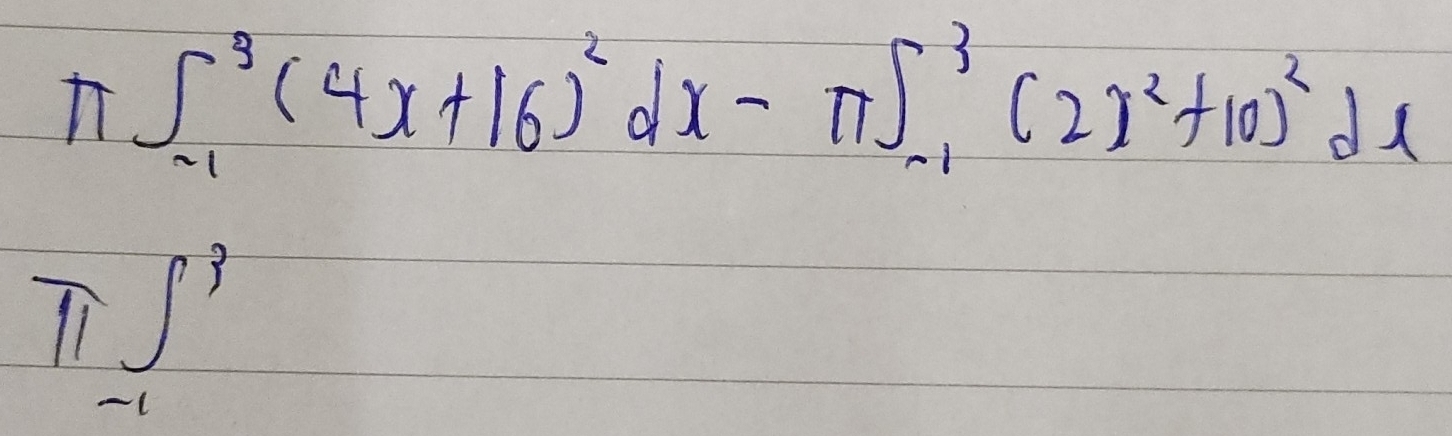 π∫₋₁³ (4x+16)² dx - π∫₋₁³ (2x²+10)² dx
π∫₋₁³